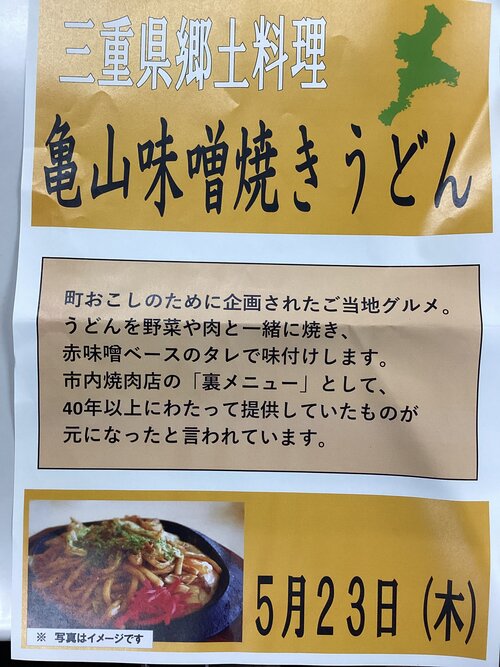 三重県郷土料理
亀山味噌焼きうどん
町おこしのために企画されたご当地グルメ。
うどんを野菜や肉と一緒に焼き、
赤味噌ベースのタレで味付けします。
市内焼肉店の「裏メニュー」として、
40年以上にわたって提供していたものが
元になったと言われています。
※ 写真はイメージです
5月23日(木)